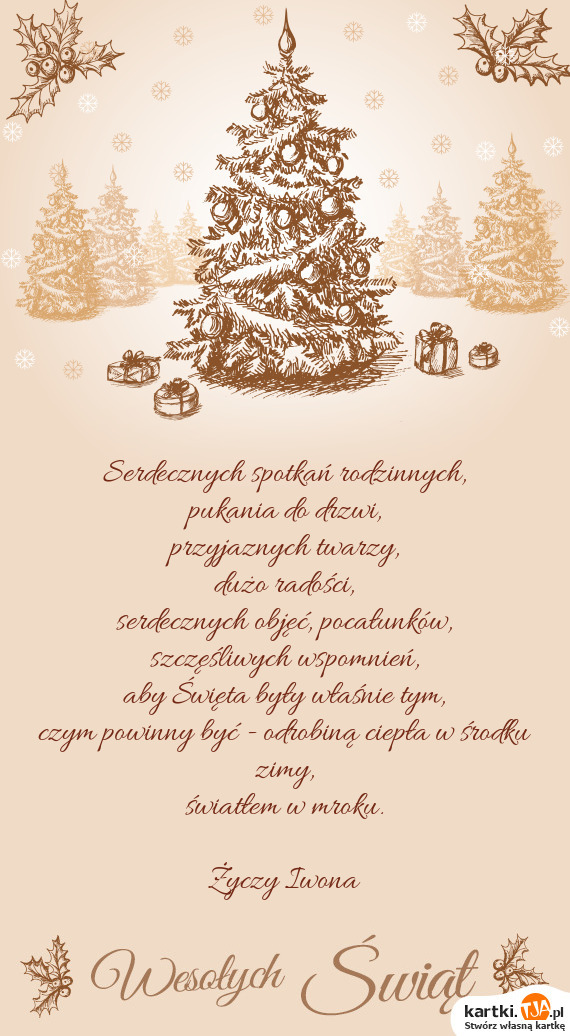 Serdecznych spotkań rodzinnych,
pukania do drzwi,
przyjaznych twarzy,
dużo radości,
serdecznych objęć, pocałunków,
szczęśliwych wspomnień,
aby Święta były właśnie tym,
czym powinny być - odrobiną ciepła w środku
zimy,
światłem w mroku.
Życzy Iwona
Wesołych Świąt
kartki.TJA.pl
Stwórz własną kartkę